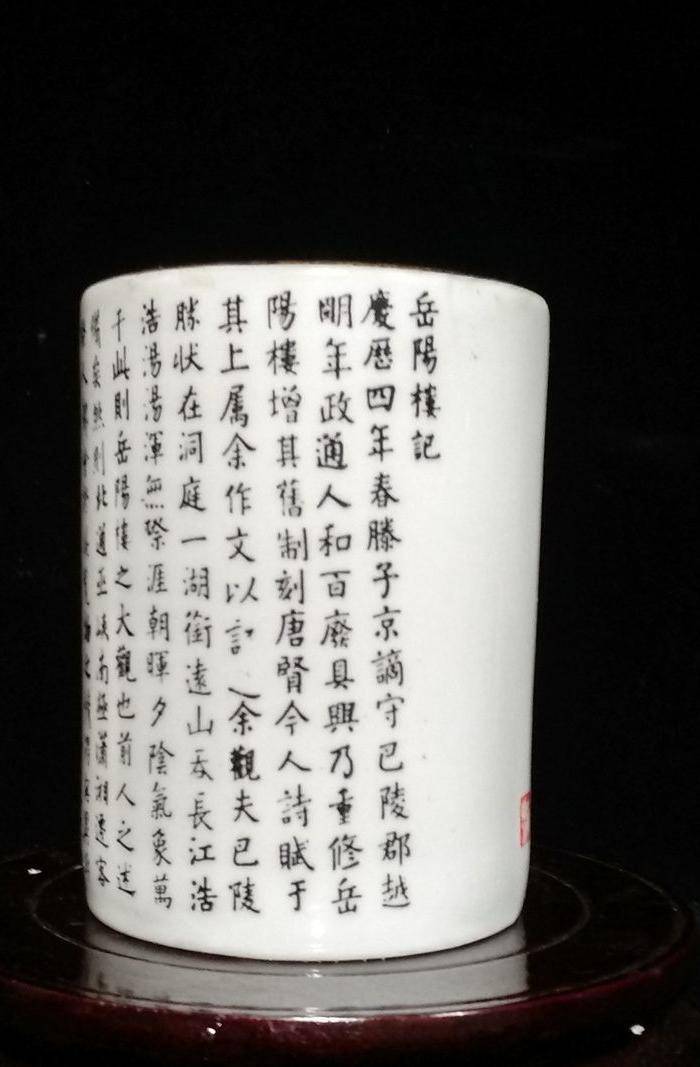 岳陽樓記
慶歷四年春滕子京謫守巴陵郡越
明年政通人和百廢具興乃重修岳
陽樓增其舊制刻唐賢今人詩賦于
其上属余作文以記之余觀夫巴陵
勝状在洞庭一湖銜遠山吞長江浩
浩湯湯渾無際涯朝暉夕陰氣象萬
千此則岳陽樓之大觀也前人之述
備矣然則北通巫峽南極瀟湘遷客